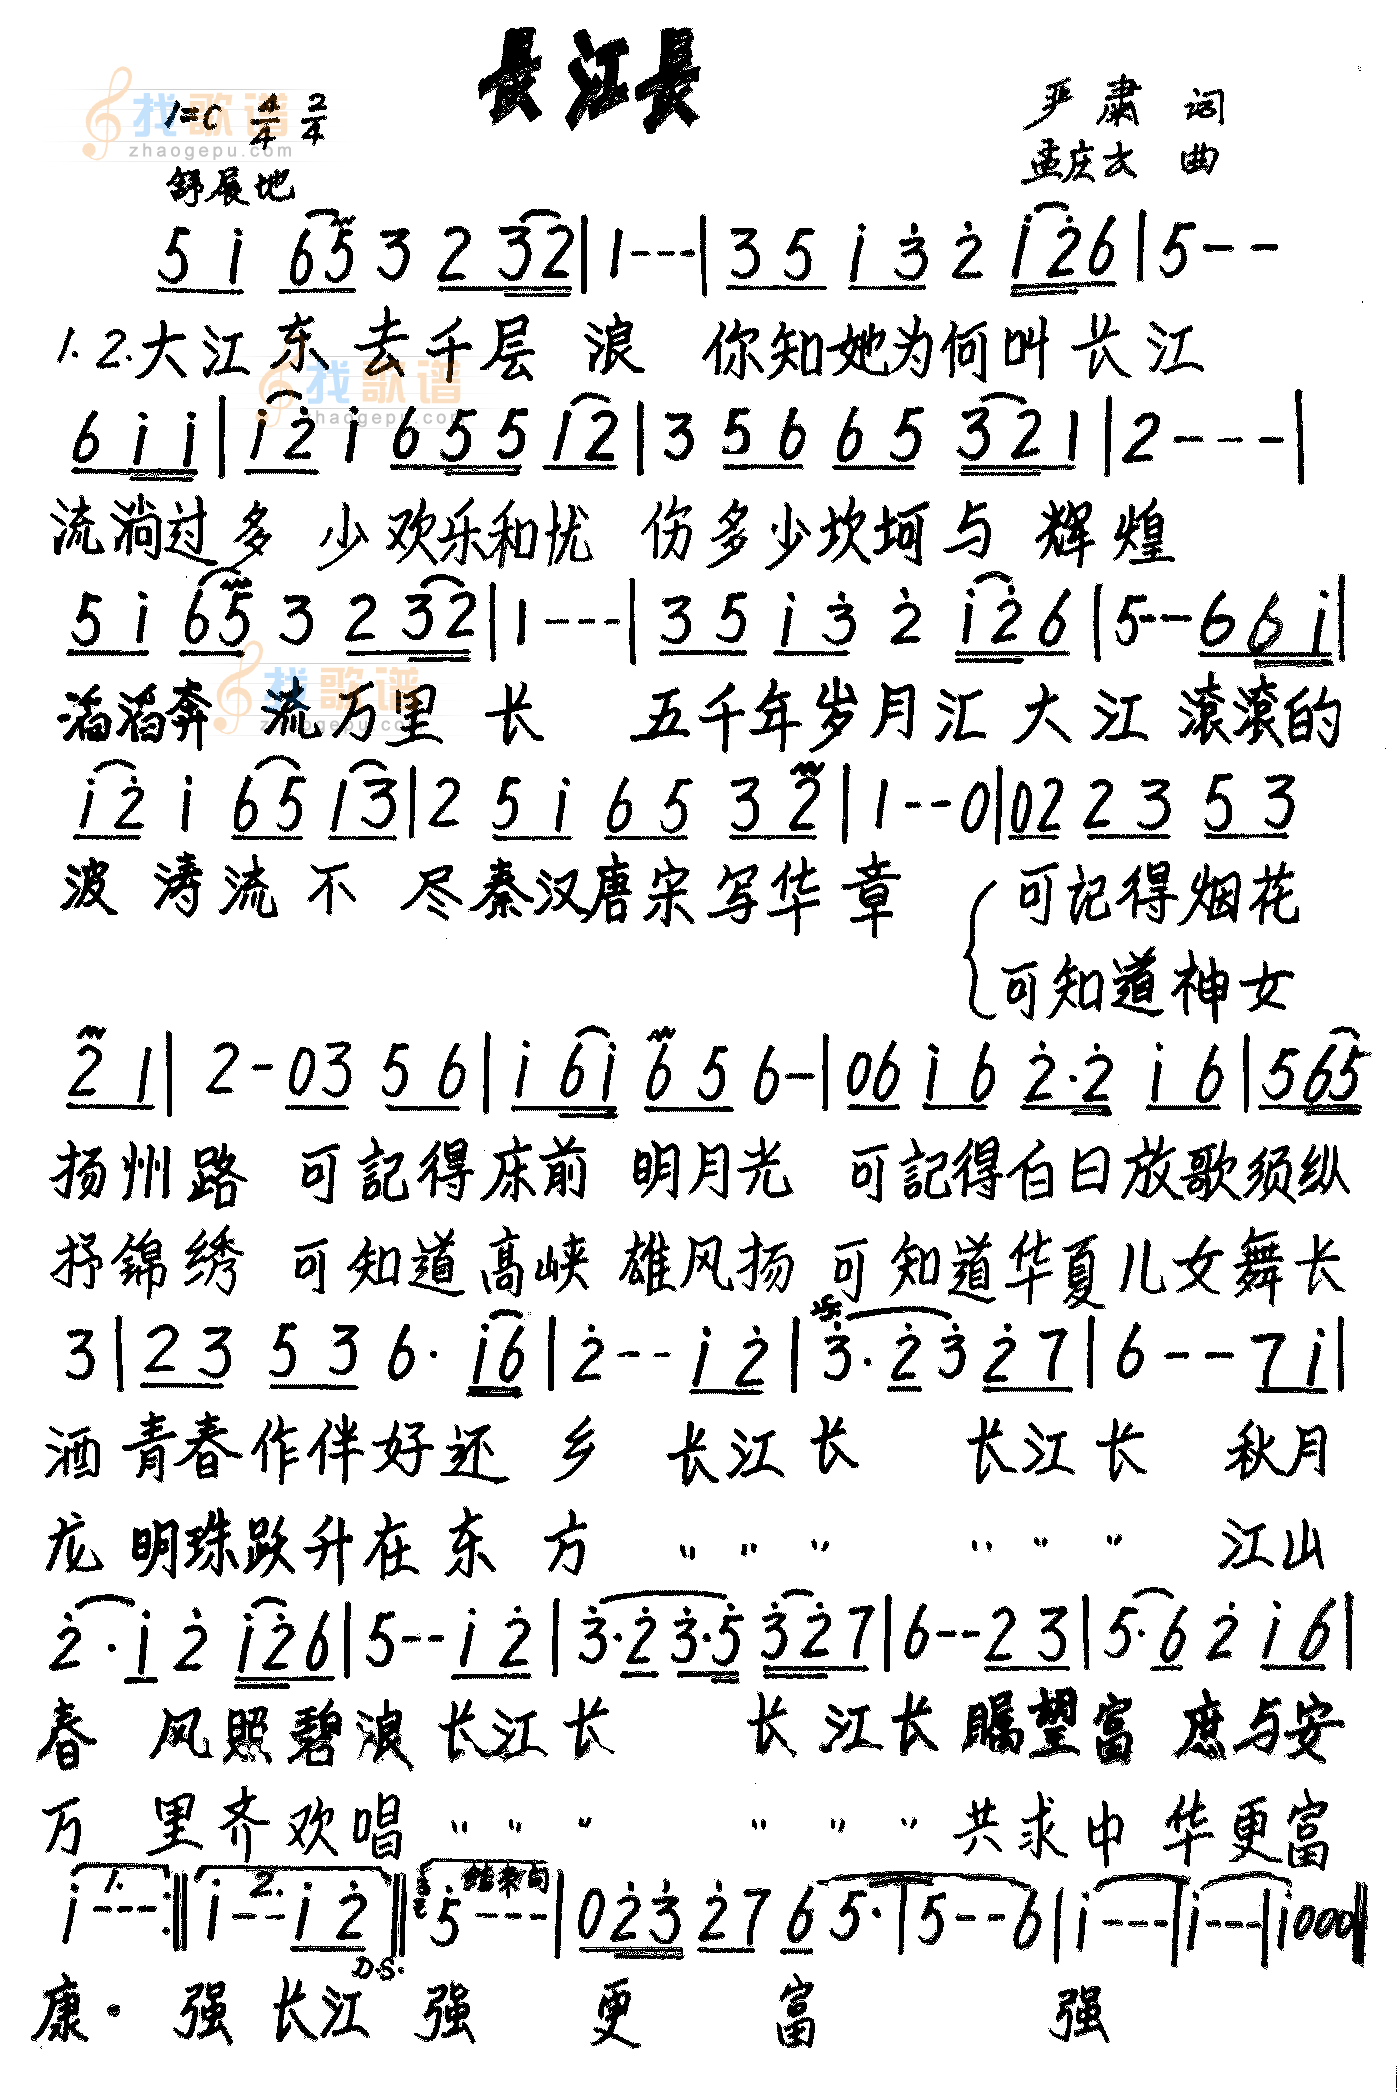 长江长
1=C 4/4 2/4
严肃 词
孟庆云 曲
舒展地
找歌谱
zhaogepu.com
5 i 65 3 2 32 | 1--- | 3 5 i 3̇ 2̇ i2̇6 | 5--
1.2.大江东去千层浪 你知她为何叫长江
6 i i | i2̇ i 6 5 5 12 | 3 5 6 6 5 321 | 2---|
流淌过多少欢乐和忧伤多少坎坷与辉煌
5 i 65 3 2 32 | 1--- | 3 5 i 3̇ 2̇ i2̇6 | 5--6 6 i|
滔滔奔流万里长 五千年岁月汇大江滚滚的
i2̇ i 65 13 | 2 5 i 6 5 3 2 | 1--0 | 02 2 3 5 3
波涛流不尽秦汉唐宋写华章 可记得烟花
可知道神女
2 1 | 2-03 5 6 | i 6i 6 5 6- | 06 i 6 2̇·2̇ i 6 | 565
扬州路 可記得床前明月光 可記得白日放歌须纵
抒錦绣 可知道高峡雄风扬 可知道华夏儿女舞长
3 | 23 5 3 6· i6 | 2̇-- i 2̇ | 3̇·2̇3̇ 2̇7 | 6--7i|
酒青春作伴好还乡 长江长 长江长 秋月
龙明珠跃升在东方 〃 〃 〃 〃 〃 〃 江山
2̇·i 2̇ i2̇6 | 5--i 2̇ | 3̇·2̇3̇·5̇ 3̇2̇7 | 6--23 | 5·6 2̇ i6|
春风照碧浪长江长 长江长瞩望富庶与安
万里齐欢唱 〃 〃 〃 〃 〃 〃 共求中华更富
1. 2. 结束句
i---:‖ i--i 2̇ ‖ 5̇--- | 02̇3̇ 2̇7 6 5· | 5--6 | i--- | i--- | i000‖
D.S.
康· 强长江强 更富强